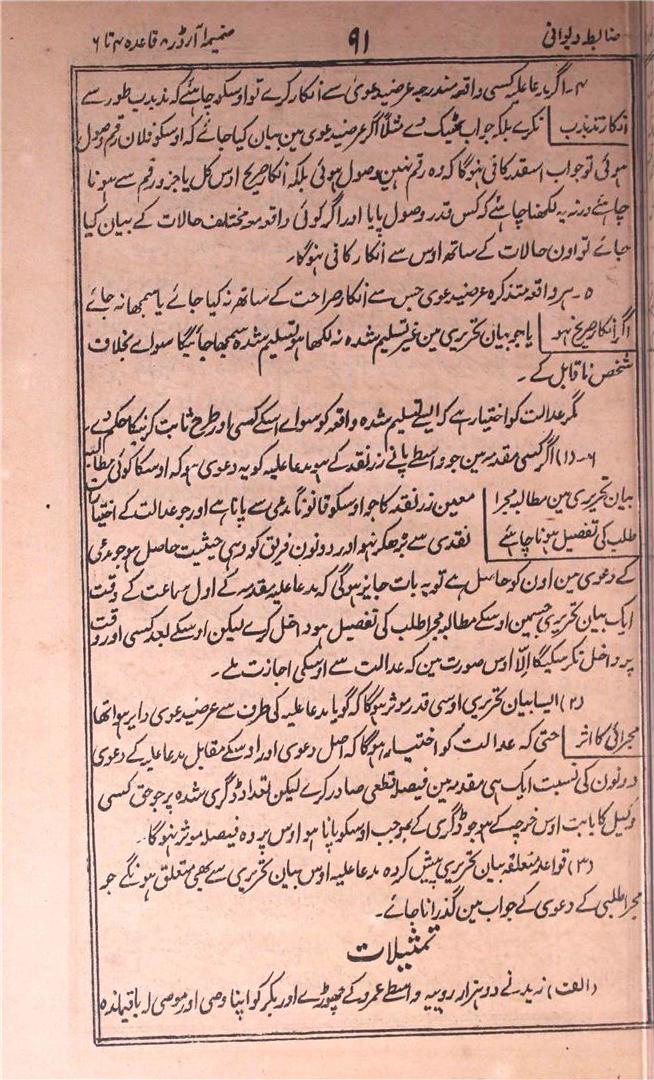 ضابطہ دیوانی ۹۱ ضمیمہ ۱ آرڈر ۸ قاعدہ ۴ تا ۶
۴۔ اگر مدعا علیہ کسی واقعہ مندرجہ عرضیدعوی سے انکار کرے تو اوسکو چاہئے کہ تذبذب طور سے
انکار تذبذب نکرے بلکہ جواب ٹھیک دے مثلاً اگر عرضیدعوی مین بیان کیا جائے کہ اوسکو فلان رقم وصول
ہوئی تو جواب اسقدر کافی نہوگا کہ وہ رقم نہین وصول ہوئی بلکہ انکار صریح اوس کل یا جزو رقم سے ہونا
چاہئے ورنہ یہ لکھنا چاہئے کہ کس قدر وصول پایا اور اگر کوئی واقعہ معہ مختلف حالات کے بیان کیا
جائے تو اون حالات کے ساتھ اوس سے انکار کافی نہوگا۔
۵۔ ہر واقعہ متذکرہ عرضیدعوی جس سے انکار صراحت کے ساتھ نہ کیا جائے یا سمجھا نہ جائے
اگر انکار صریح نہو یا جو بیان تحریری مین غیر تسلیم شدہ نہ لکھا ہو تسلیم شدہ سمجھا جائیگا سواے بخلاف
شخص ناقابل کے۔
مگر عدالت کو اختیار ہے کہ ایسے تسلیم شدہ واقعہ کو سواے اسکے کسی اور طرح ثابت کرنیکا حکم دے۔
۶۔ (۱) اگر کسی مقدمہ مین جو واسطے پانے زر نقد کے ہو مدعا علیہ کو یہ دعوی ہو کہ اوسکا کوئی مطالبہ
بیان تحریری مین مطالبہ مجرا معین زر نقد کا جو اوسکو قانوناً مدعی سے پانا ہے اور جو عدالت کے اختیار
طلب کی تفصیل ہونا چاہئے نقدی سے بڑھکر نہو اور دونون فریق کو وہی حیثیت حاصل ہو جو مدعی
کے دعوی مین اون کو حاصل ہے تو یہ بات جایز ہوگی کہ مدعا علیہ مقدمہ کے اول سماعت کے وقت
ایک بیان تحریری جسمین اوسکے مطالبہ مجرا طلب کی تفصیل ہو داخل کرے لیکن اوسکے بعد کسی اور وقت
پر داخل نکر سکیگا الّا اوس صورت مین کہ عدالت سے اوسکی اجازت ملے۔
(۲) ایسا بیان تحریری اوسی قدر موثر ہوگا کہ گویا مدعا علیہ کی طرف سے عرضیدعوی دایر ہوا تھا
مجرائی کا اثر حتی کہ عدالت کو اختیار ہوگا کہ اصل دعوی اور اوسکے مقابل مدعا علیہ کے دعوی
دونون کی نسبت ایک ہی مقدمہ مین فیصلہ قطعی صادر کرے لیکن تعداد ڈگری شدہ پر جو حق کسی
وکیل کا بابت اوس خرچہ کے ہو جو ڈگری کے بموجب اوسکو پانا ہو اوس پر وہ فیصلہ موثر نہوگا۔
(۳) قواعد متعلقہ بیان تحریری پیش کردہ مدعا علیہ اوس بیان تحریری سے بھی متعلق ہونگے جو
مجرا طلبی کے دعوی کے جواب مین گذرانا جائے۔
تمثیلات
(الف) زید نے دو ہزار روپیہ واسطے عمرو کے چھوڑے اور بکر کو اپنا وصی اور موصی لہ باقیماندہ